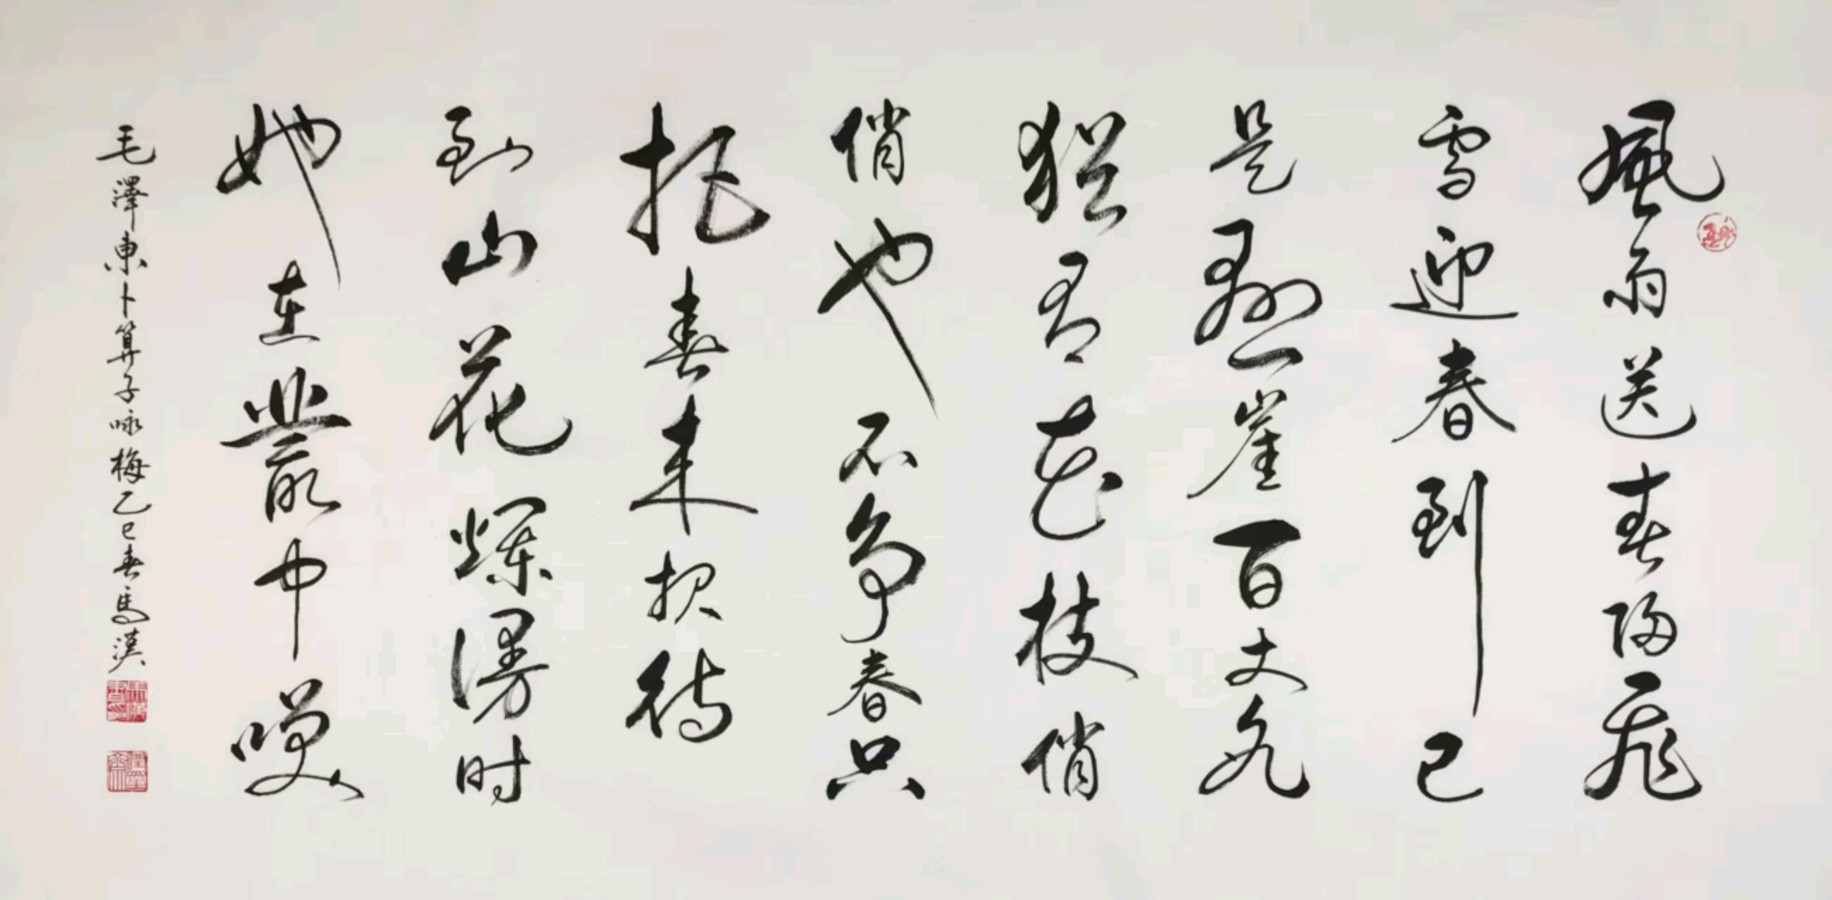 風雨送春歸飛
雪迎春到已
是懸崖百丈冰
猶有花枝俏
俏也不争春只
把春来报待
到山花爛漫时
她在叢中咲
毛澤東卜算子咏梅乙巳春馬漢